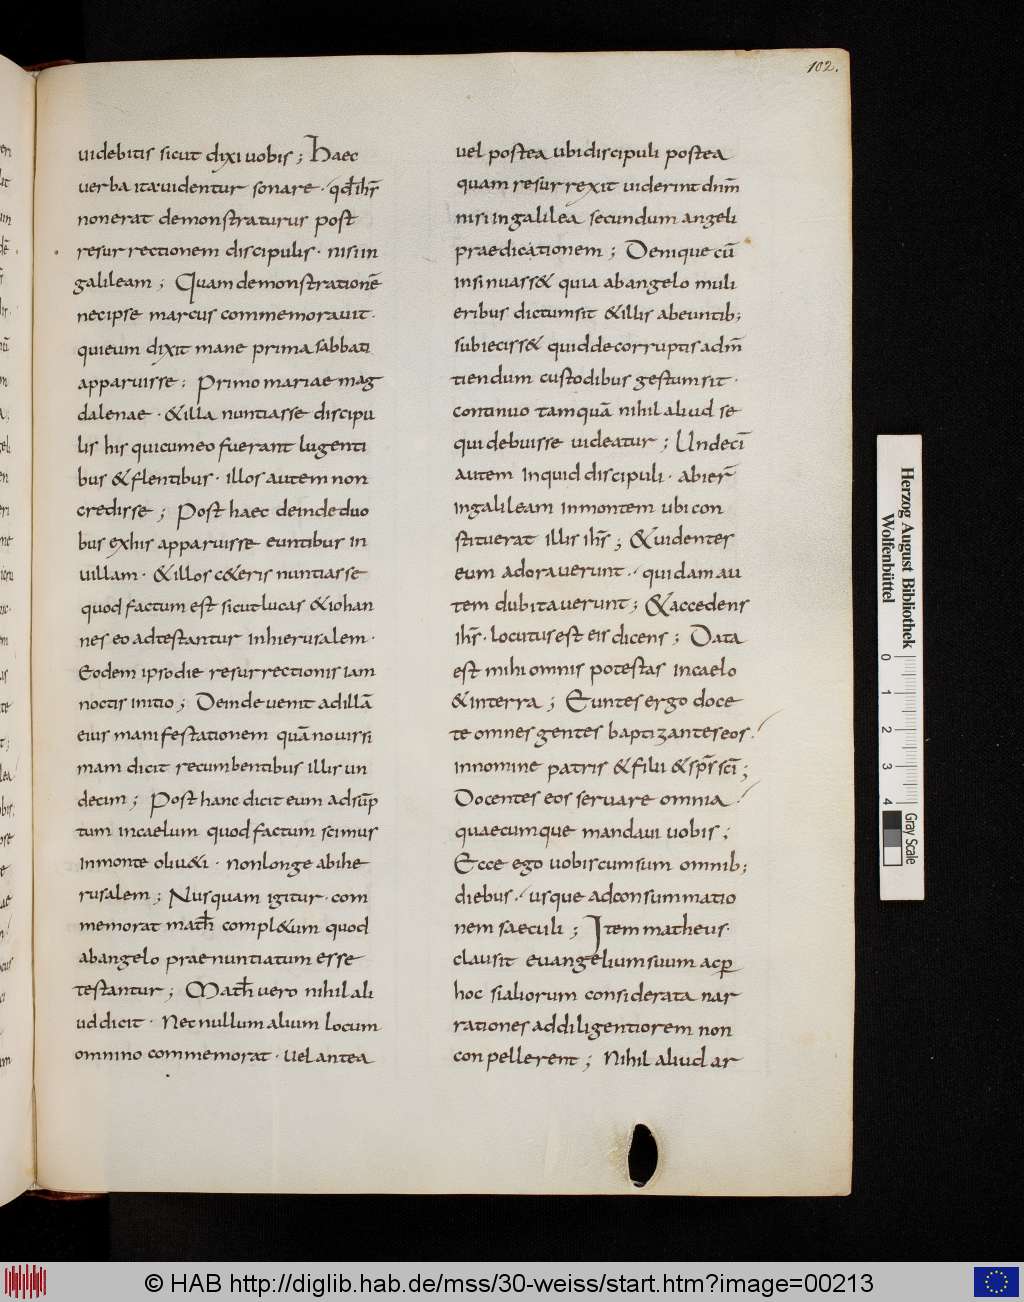 102.
uidebitis sicut dixi uobis; Haec
uerba ita uidentur sonare · qd̄ ih̄s
non erat demonstraturus post
resurrectionem discipulis · nisi in
galileam; Quam demonstrationē
nec ipse marcus commemorauit ·
qui eum dixit mane prima sabbati
apparuisse; Primo mariae mag
dalenae · & illa nuntiasse discipu
lis his qui cum eo fuerant lugenti
bus & flentibus · illos autem non
credisse; Post haec deinde duo
bus ex his apparuisse euntibus in
uillam · & illos c&eris nuntiasse
quod factum est sicut lucas & iohan
nes eo adtestantur in hierusalem ·
Eodem ipso die resurrectionis iam
noctis initio; Deinde uenit ad illā
eius manifestationem quā nouissi
mam dicit recumbentibus illis un
decim; Post hanc dicit eum adsūp
tum in caelum quod factum scimus
in monte oliu&i · non longe ab ihe
rusalem; Nusquam igitur · com
memorat math̄ compl&um quod
ab angelo praenuntiatum esse
testantur; Math̄ uero nihil ali
ud dicit · Nec nullum alium locum
omnino commemorat · uel antea
uel postea ubi discipuli postea
quam resurrexit uiderint dn̄m
nisi in galilea secundum angeli
praedicationem; Denique cū
insinuass& quia ab angelo muli
eribus dictum sit & illis abeuntib;
subieciss& quid de corruptis ad m̄
tiendum custodibus gestum sit ·
continuo tamquā nihil aliud se
qui debuisse uideatur; Undecī
autem inquid discipuli · abier̄
in galileam in montem ubi con
stituerat illis ih̄s; & uidentes
eum adorauerunt · quidam au
tem dubitauerunt; & accedens
ih̄s · locutus est eis dicens; Data
est mihi omnis potestas in caelo
& in terra; Euntes ergo doce
te omnes gentes baptizantes eos ·
in nomine patris & filii & sp̄s sc̄i;
Docentes eos seruare omnia ·
quaecumque mandaui uobis;
Ecce ego uobiscum sum omnib;
diebus · usque ad consummatio
nem saeculi; Item matheus ·
clausit euangelium suum ac ꝑ
hoc si aliorum considerata nar
rationes ad diligentiorem non
conpellerent; Nihil aliud ar
Herzog August Bibliothek
Wolfenbüttel
0 1 2 3 4
Gray Scale
© HAB http://diglib.hab.de/mss/30-weiss/start.htm?image=00213